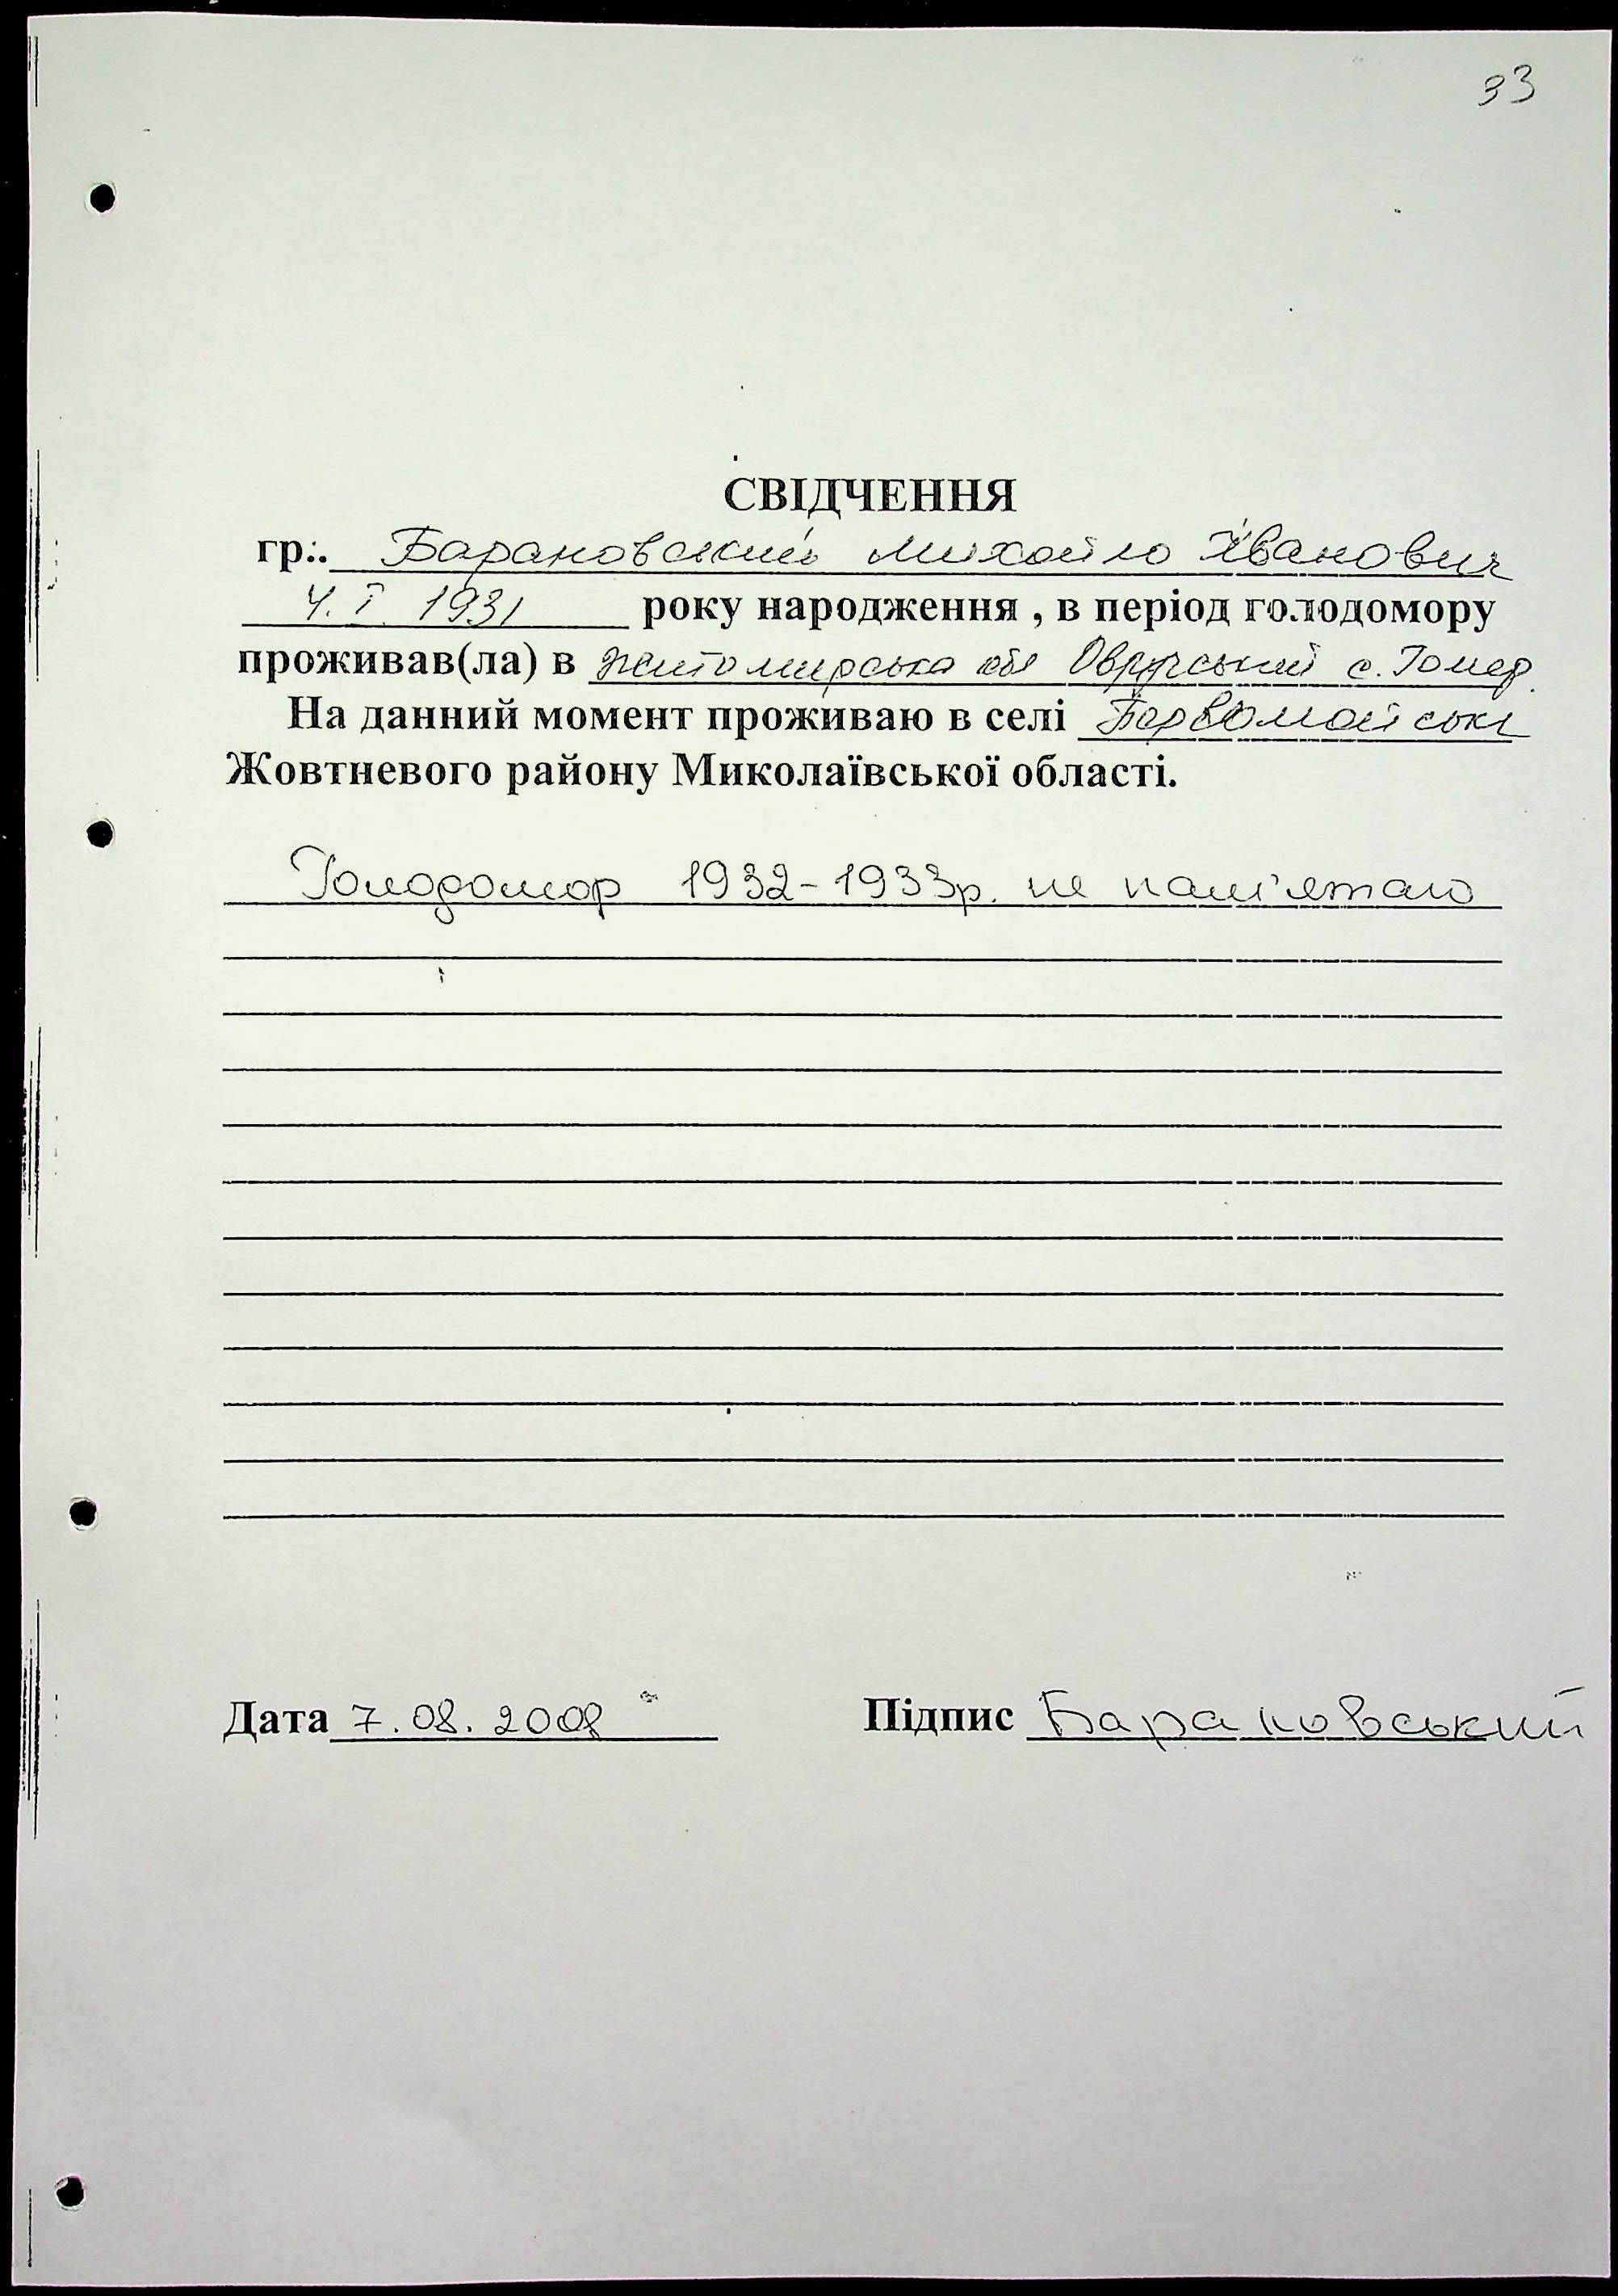 33
СВІДЧЕННЯ
гр.:. Барановський Михайло Іванович
4.I. 1931 року народження , в період голодомору
проживав(ла) в Житомирська обл Овруцський с.
На данний момент проживаю в селі
Жовтневого району Миколаївської області.
Голодомор 1932-1933р. не пам'ятаю
Дата 7.08.2008 Підпис Барановський